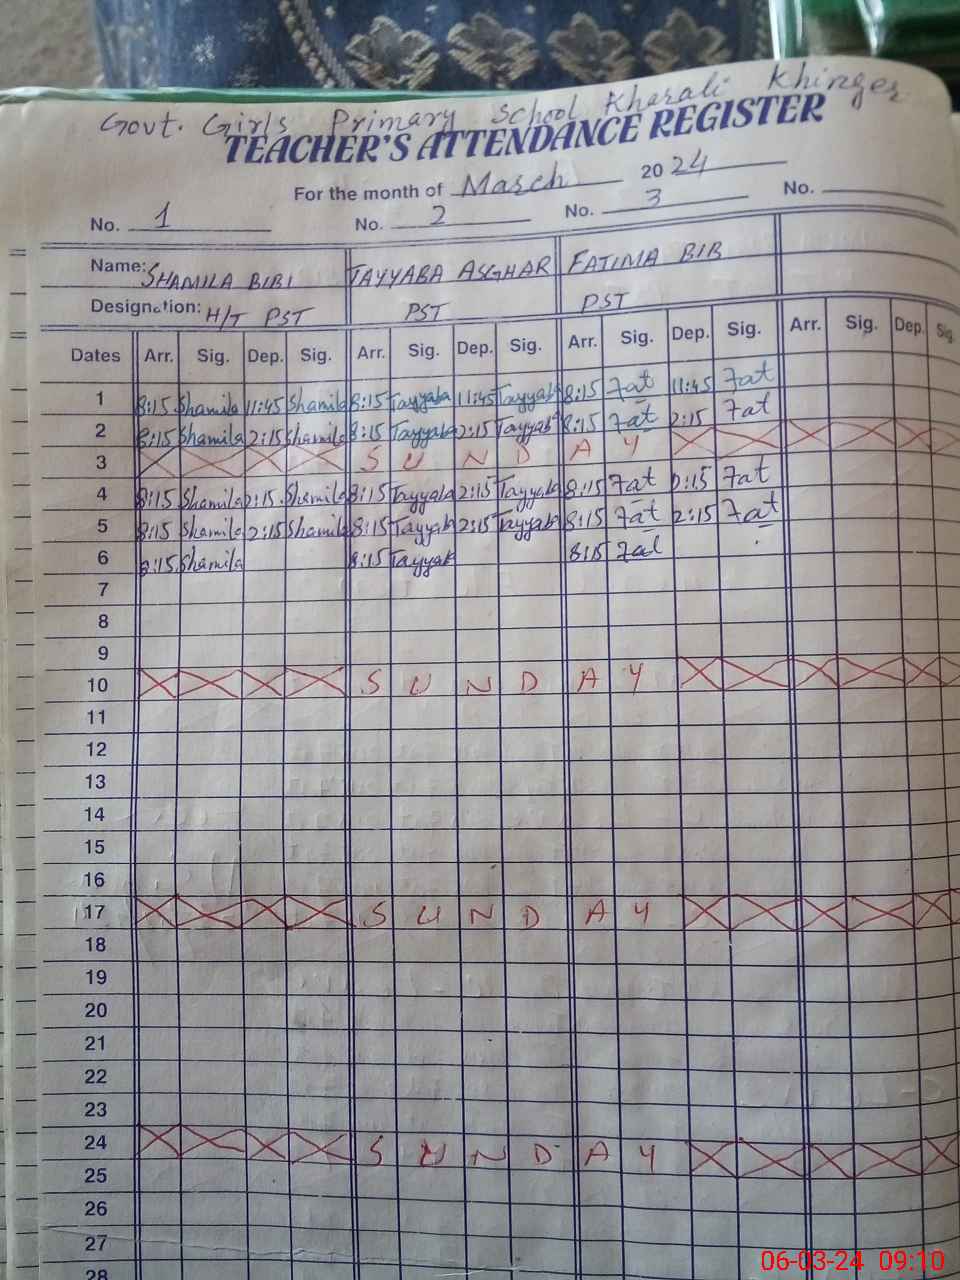 Govt. Girls Primary School Kharali Khinger
TEACHER'S ATTENDANCE REGISTER
For the month of March 2024
No. 1 No. 2 No. 3 No.
Name: SHAMILA BIBI TAYYABA ASGHAR FATIMA BIB
Designation: H/T PST PST PST
Dates Arr. Sig. Dep. Sig. Arr. Sig. Dep. Sig. Arr. Sig. Dep. Sig. Arr. Sig. Dep. Sig.
1 8:15 Shamila 11:45 Shamila 8:15 Tayyaba 11:45 Tayyab 8:15 Fat 11:45 Fat
2 8:15 Shamila 2:15 Shamila 8:15 Tayyaba 2:15 Tayyab 8:15 Fat 2:15 Fat
3 S U N D A Y
4 8:15 Shamila 2:15 Shamila 8:15 Tayyaba 2:15 Tayyaba 8:15 Fat 2:15 Fat
5 8:15 Shamila 2:15 Shamila 8:15 Tayyab 2:15 Tayyab 8:15 Fat 2:15 Fat
6 8:15 Shamila 8:15 Tayyab 8:15 Fat
7
8
9
10 S U N D A Y
11
12
13
14
15
16
17 S U N D A Y
18
19
20
21
22
23
24 S U N D A Y
25
26
27
28
06-03-24 09:10